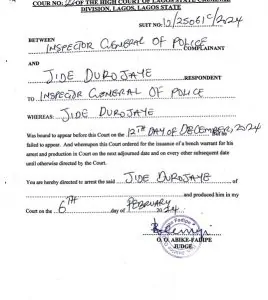 COUR NO: OF THE HIGH COURT OF LAGOS STATE CRIMINAL
DIVISION, LAGOS, LAGOS STATE
SUIT NO: 12/25061C/2024
BETWEEN
INSPECTOR GENERAL OF POLICE
COMPLAINANT
AND
JIDE DUROJAYE
RESPONDENT
TO INSPECTOR GENERAL OF POLICE
WHEREAS: JIDE DUROJAYE
Was bound to appear before this Court on the 12TH DAY OF DECEMBER, 2024
failed to appear. And whereupon this Court ordered for the issuance of a bench warrant for his
arrest and production in Court on the next adjourned date and on every other subsequent date
until otherwise directed by the Court.
You are hereby directed to arrest the said JIDE DUROJAYE of
and produced him in my
Court on the 6TH day of FEBRUARY 2024.
O. O. ABIKE-FADIPE
JUDGE